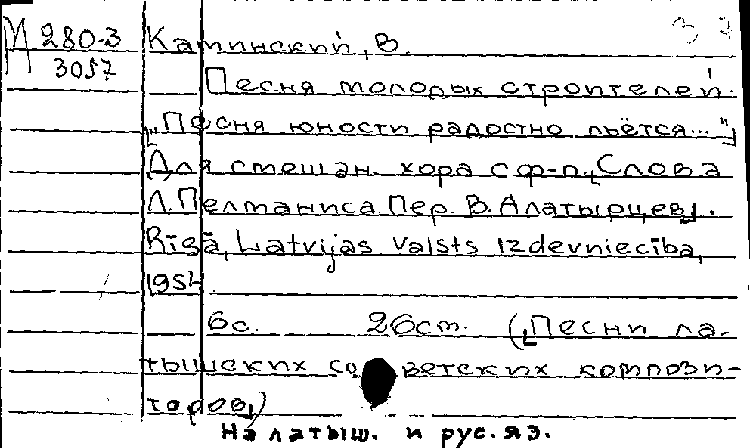 М 280-3
3057
Каминский, В.
Песня молодых строителей.
[„Песня юности радостно льётся..."]
Для смешан. хора с ф-п. [Слова
Л. Пелманиса Пер. В. Алатырцев].
Rīgā, Latvijas Valsts Izdevniecība,
1954.
6с. 26см. ([Песни ла-
тышских советских компози-
торов])
На латыш. и рус. яз.